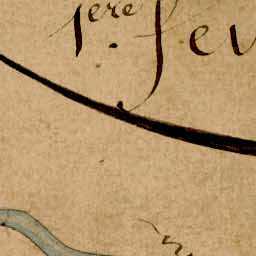 1ere fev